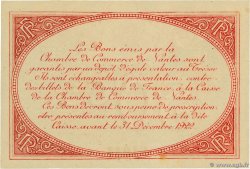 Les Bons émis par la
Chambre de Commerce de Nantes sont
garantis par un dépôt d'égale valeur au Trésor
Ils sont échangeables à présentation contre
des billets de la Banque de France, à la Caisse
de la Chambre de Commerce de Nantes.
Ces Bons devront, sous peine de prescription
être présentés au remboursement à la dite
Caisse, avant le 31 Décembre 1922.